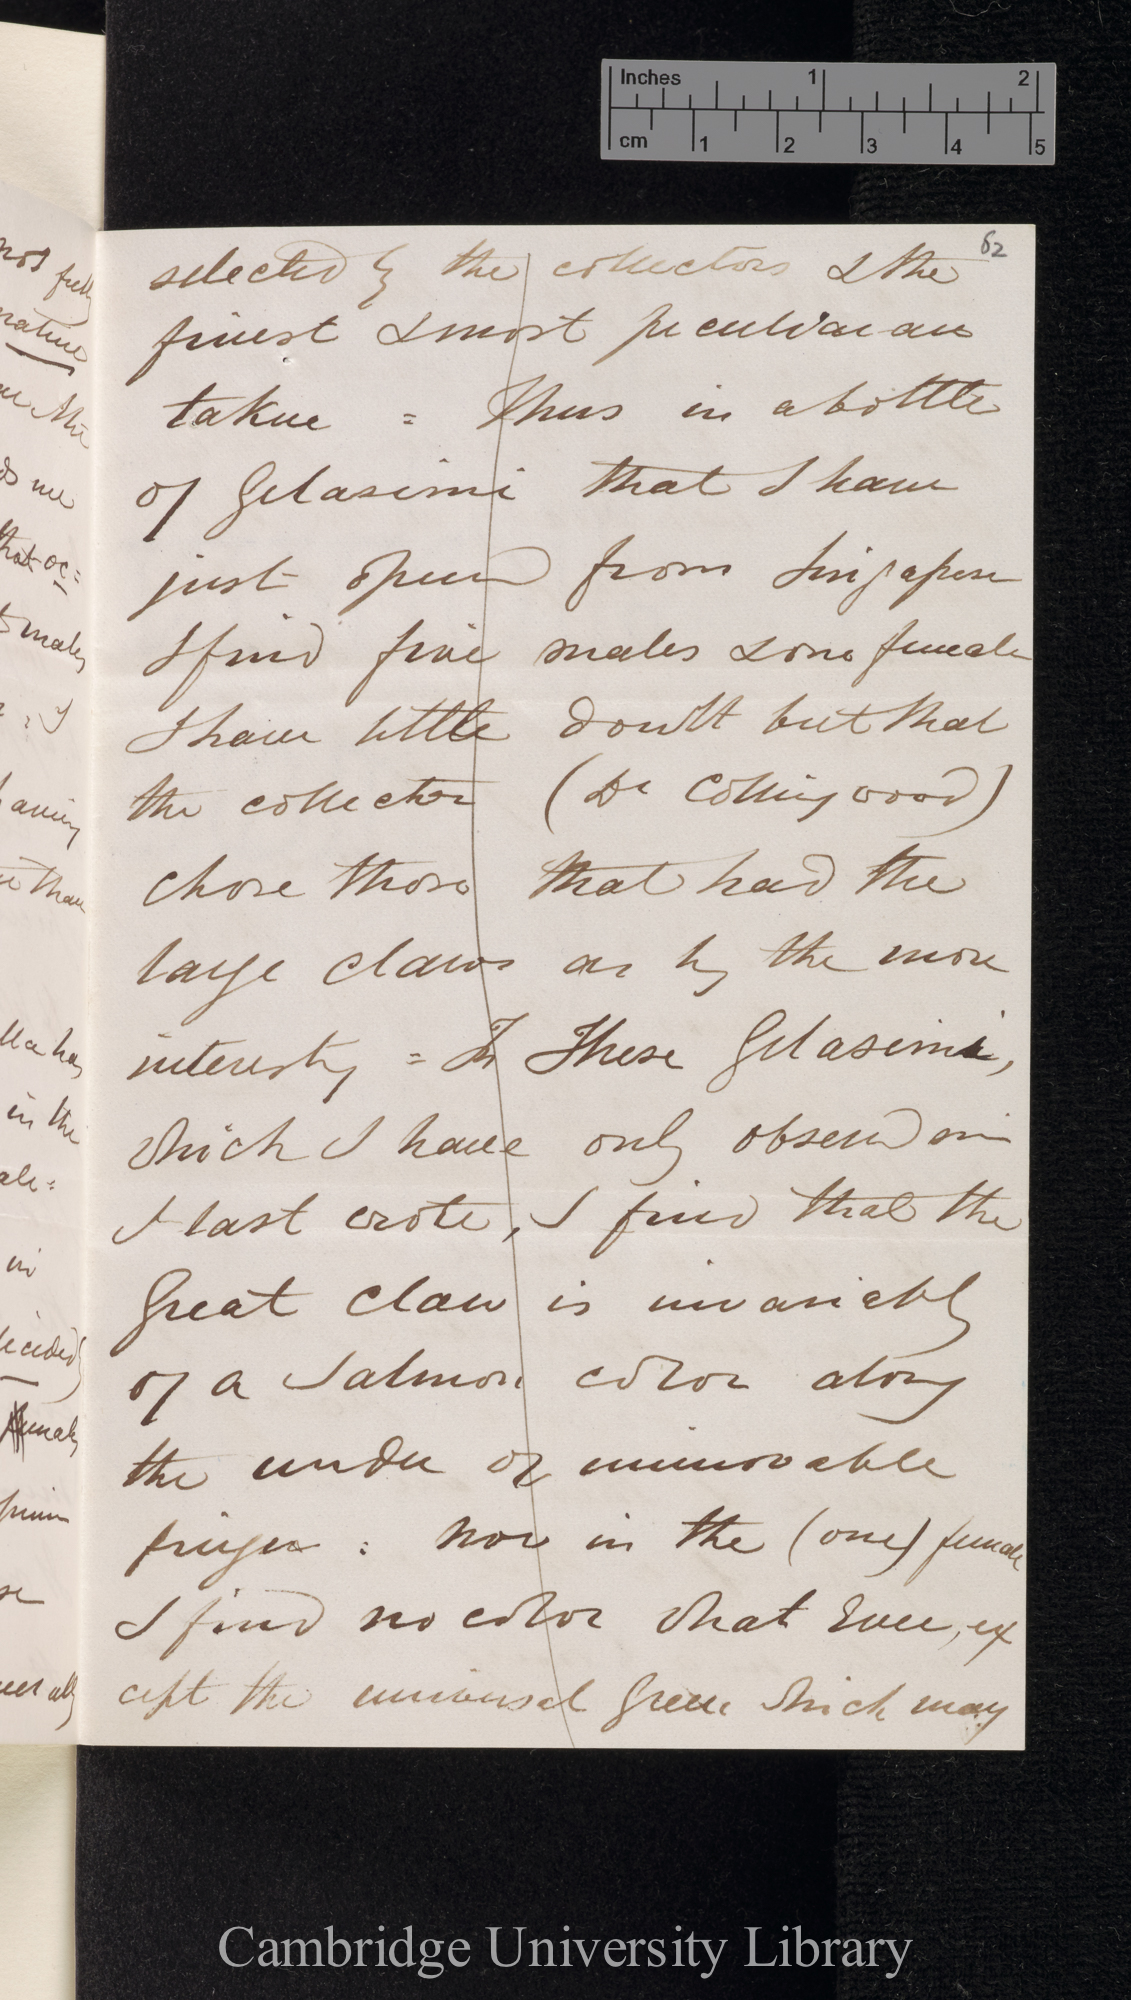 Inches 1 2
cm 1 2 3 4 5
62
selected by the collectors & the
finest & most peculiar are
taken = Thus in a bottle
of Gelasimi that I have
just opened from Singapore
I find five males & one female
I have little doubt but that
the collector (Dr Collingwood)
chose those that had the
large claws as by the more
interestg = In These Gelasimi,
which I have only observed sin
I last wrote, I find that the
Great claw is invariably
of a Salmon color along
the under or immovable
finger : Now in the (one) female
I find no color what Ever, ex
cept the universal Green which may
not fully
nature
the
me
that oc=
males
I
having
than
has
in the
in
decided
Cambridge University Library